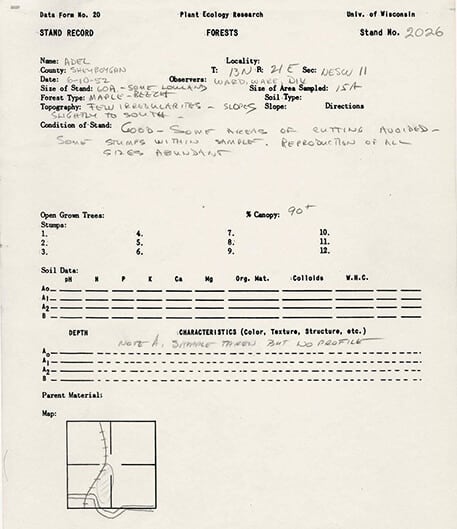 Data Form No. 20 Plant Ecology Research Univ. of Wisconsin
STAND RECORD FORESTS Stand No. 2026
Name: ADEL Locality:
County: SHEYBOYGAN T: 13N R: 21E Sec: NESW 11
Date: 6-10-52 Observers: WARD, WARE, DIX
Size of Stand: 60A - SOME LOWLAND Size of Area Sampled: 15A
Forest Type: MAPLE-BEECH Soil Type:
Topography: FEW IRREGULARITES - SLOPES Slope: Directions
SLIGHTLY TO SOUTH -
Condition of Stand: GOOD - SOME AREAS OF CUTTING AVOIDED -
SOME STUMPS WITHIN SAMPLE. REPRODUCTION OF ALL
SIZES ABUNDANT
Open Grown Trees: % Canopy: 90+
Stumps:
1. 4. 7. 10.
2. 5. 8. 11.
3. 6. 9. 12.
Soil Data:
pH N P K Ca Mg Org. Mat. Colloids W.H.C.
Ao
A1
A2
B
DEPTH CHARACTERISTICS (Color, Texture, Structure, etc.)
NOTE A1 SAMPLE TAKEN BUT NO PROFILE
Ao
A1
A2
B
Parent Material:
Map: